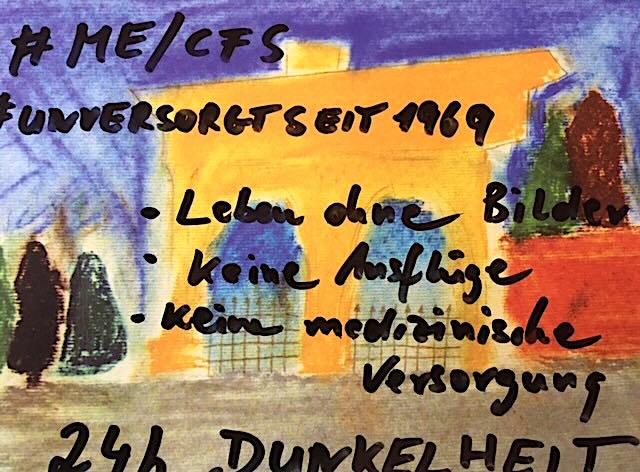 # ME/CFS
#UNVERSORGTSEIT1969
- Leben ohne Bilder
- Keine Ausflüge
- Keine medizinische
Versorgung
24h DUNKELHEIT